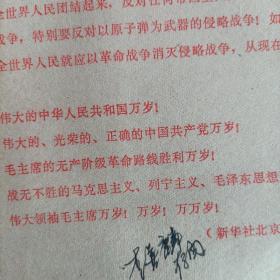 全世界人民团结起来，反对任何帝国主
战争，特别要反对以原子弹为武器的侵略战争！如
全世界人民就应以革命战争消灭侵略战争，从现在
伟大的中华人民共和国万岁！
伟大的、光荣的、正确的中国共产党万岁！
毛主席的无产阶级革命路线胜利万岁！
战无不胜的马克思主义、列宁主义、毛泽东思想
伟大领袖毛主席万岁！万岁！万万岁！
（新华社北京